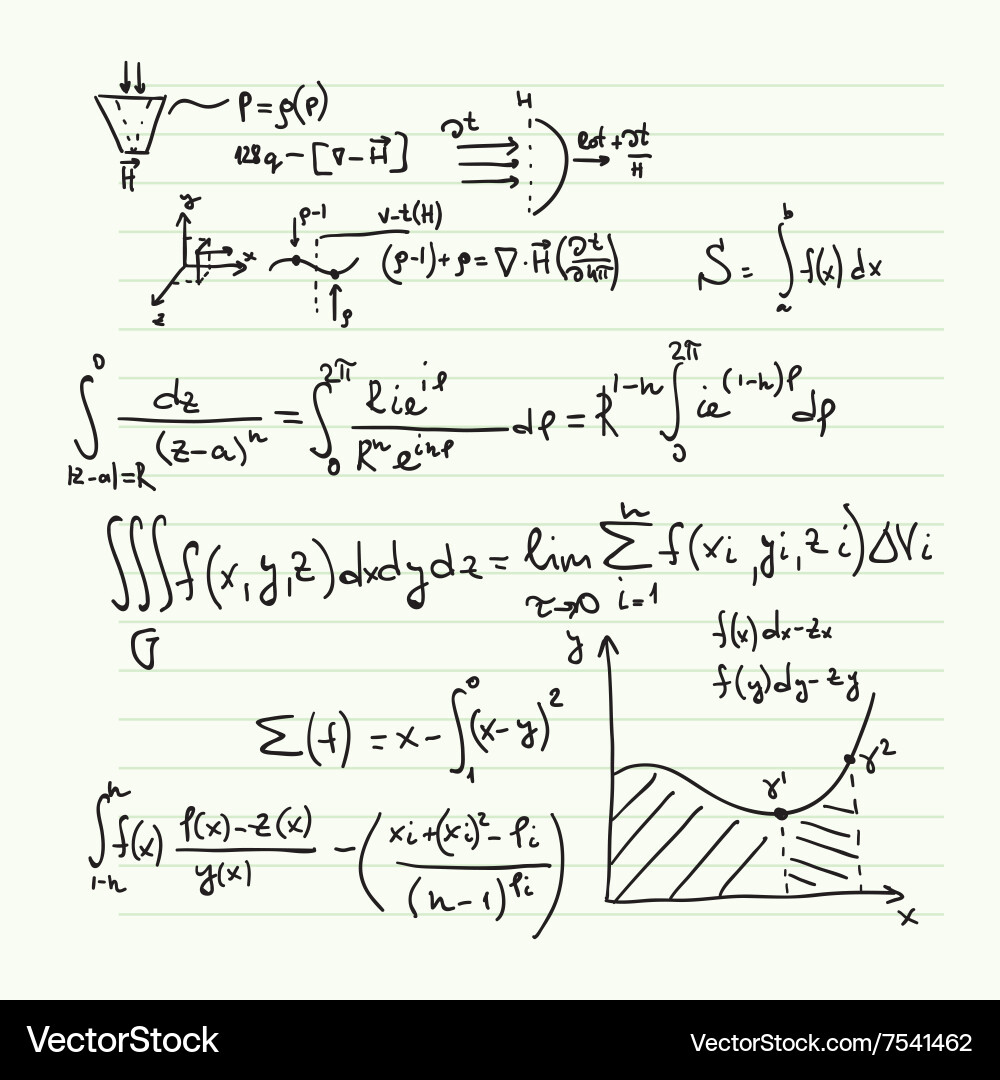 P = ρ(ρ)
H⃗
128q − [∇ − H⃗]
∂t
H
rot + ∂t/H
y
x
z
ρ-1
v-t(H)
(ρ-1) + ρ = ∇ · H⃗ (∂t/∂4π)
ρ
S = ∫_a^b f(x) dx
∫_{|z-a|=R}^0 dz/(z-a)^n = ∫_0^{2π} Rie^{iρ}/(R^n e^{inρ}) dρ = R^{1-n} ∫_0^{2π} ie^{(1-n)ρ} dρ
∭_G f(x,y,z) dxdydz = lim_{τ→0} Σ_{i=1}^n f(xi, yi, zi) ΔVi
f(x) dx - zx
f(y) dy - zy
Σ(f) = x - ∫_1^0 (x-y)^2
y
γ^1
γ^2
x
∫_{1-n}^n f(x) (ρ(x) - z(x))/y(x) - ((xi + (xi)^2 - ρi)/(n-1)^{ρi})
VectorStock®
VectorStock.com/7541462